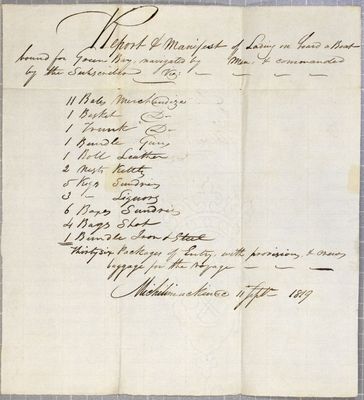 Report & Manifest of Lading on board a Boat
bound for Green Bay, navigated by Men & commanded
by the Subscriber Viz: — — — —
11 Bales Merchandize
1 Basket Do
1 Trunk Do
1 Bundle Guns
1 Roll Leather
2 Nests Kettles
5 Kegs Sundries
3 " Liquors
6 Boxes Sundries
4 Bags Shot
1 Bundle Iron & Steel
Thirty six Packages of Entry, with provisions, & crews
baggage for the voyage — — —
Michilimackinac 11 Septr 1819